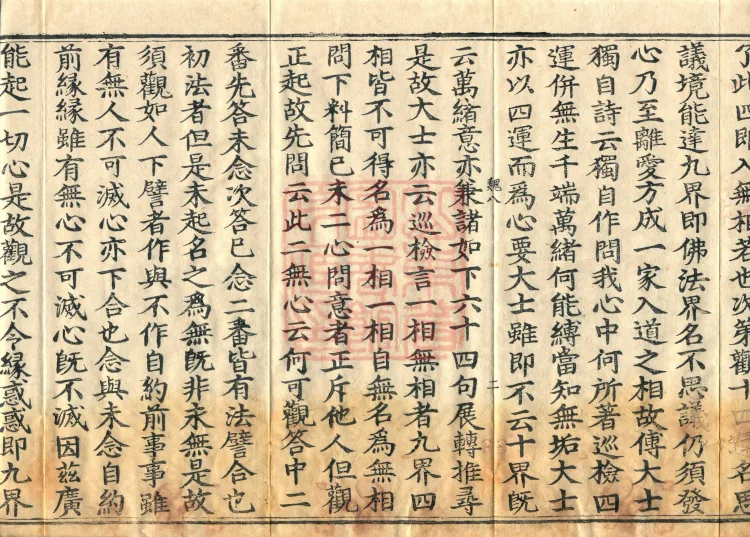 了此四即入無相若也次第觀十四名思
議境能達九界即佛法界名不思議仍須發
心乃至離愛方成一家入道之相故傅大士
獨自詩云獨自作問我心中何所著巡檢四
運併無生千端萬緒何能縛當知無垢大士
亦以四運而爲心要大士雖即不云十界旣
魏八
二
云萬緒意亦兼諸如下六十四句展轉推尋
是故大士亦云巡檢言一相無相者九界四
相皆不可得名爲一相一相自無名爲無相
問下料簡已未二心問意者正斥他人但觀
正起故先問云此二無心云何可觀答中二
番先答未念次答已念二番皆有法譬合也
初法者但是未起名之爲無旣非永無是故
須觀如人下譬者作與不作自約前事事雖
有無人不可滅心亦下合也念與未念自約
前緣緣雖有無心不可滅心旣不滅因茲廣
能起一切心是故觀之不令緣惑惑即九界